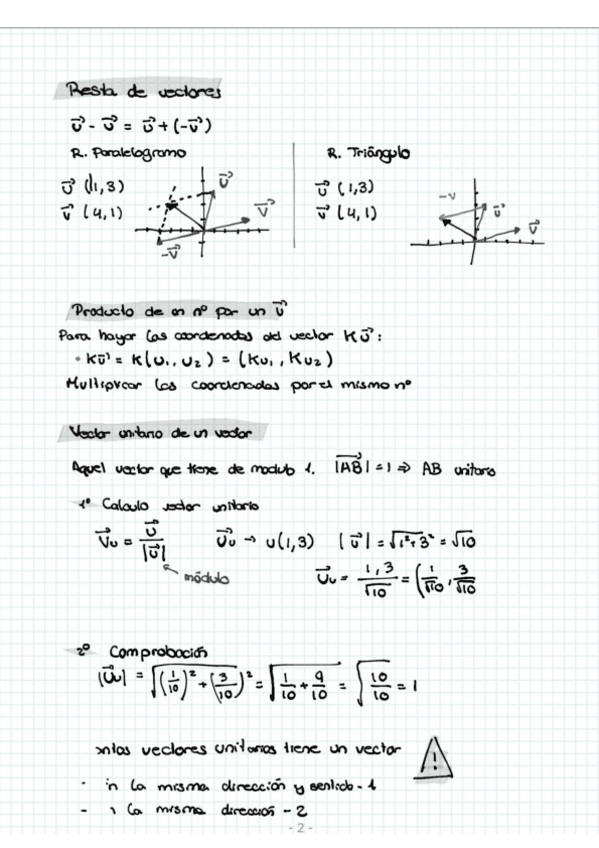 Resta de vectores
u⃗ - v⃗ = u⃗ + (-v⃗)
R. Paralelogramo
u⃗ (1,3)
v⃗ (4,1)
u⃗
v⃗
-v⃗
R. Triángulo
u⃗ (1,3)
v⃗ (4,1)
-v
u⃗
v⃗
Producto de un nº por un v⃗
Para hayar las coordenadas del vector Ku⃗:
• Ku⃗ = K(u₁, u₂) = (Ku₁, Ku₂)
Multiplicar las coordenadas por el mismo nº
Vector unitario de un vector
Aquel vector que tiene de modulo 1. |AB⃗| = 1 ⇒ AB unitario
1º Calculo vector unitario
V⃗u = u⃗/|u⃗| U⃗u → u(1,3) |u⃗| = √1²+3² = √10
módulo
U⃗u = 1,3/√10 = (1/√10, 3/√10
2º Comprobación
|U⃗u| = √(1/10)² + (3/√10)² = √1/10 + 9/10 = √10/10 = 1
ntos vectores unitarios tiene un vector
!
- n la misma dirección y sentido - 1
- la misma dirección - 2
- 2 -